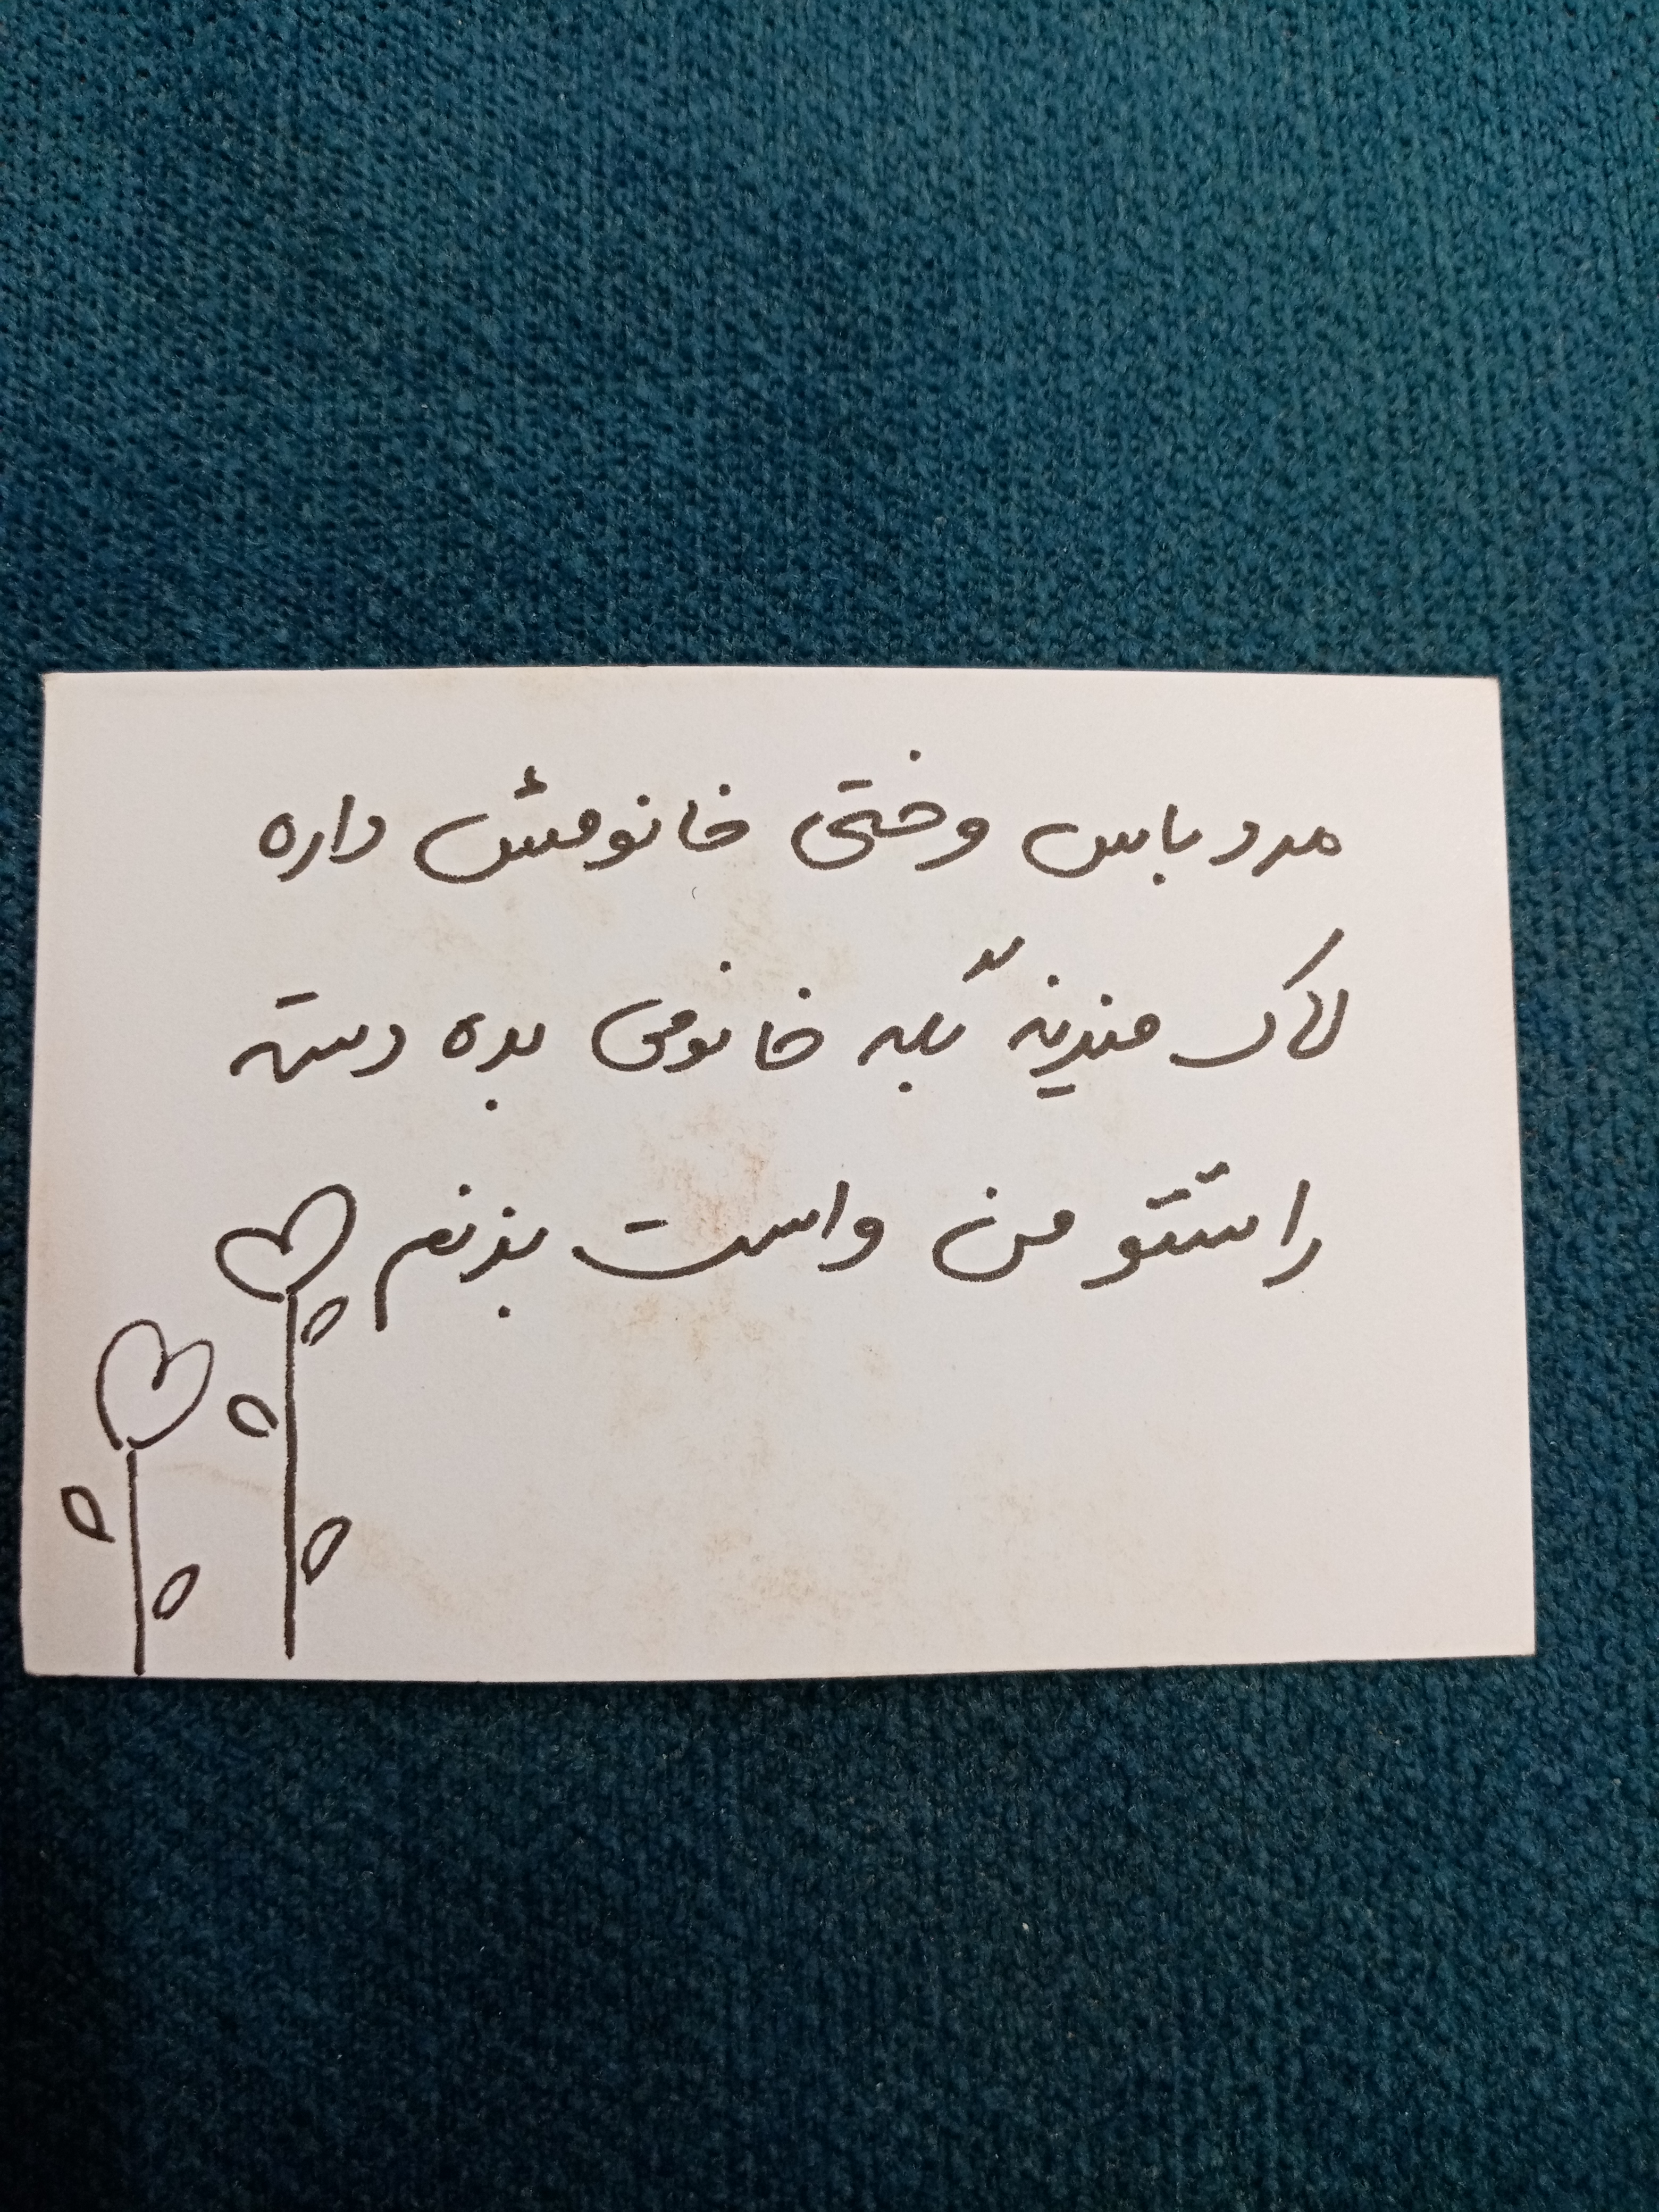 مرد باس وختی خانومش داره
لاک میزنه بگه خانومی بده دسته
راستتو من واست بزنم